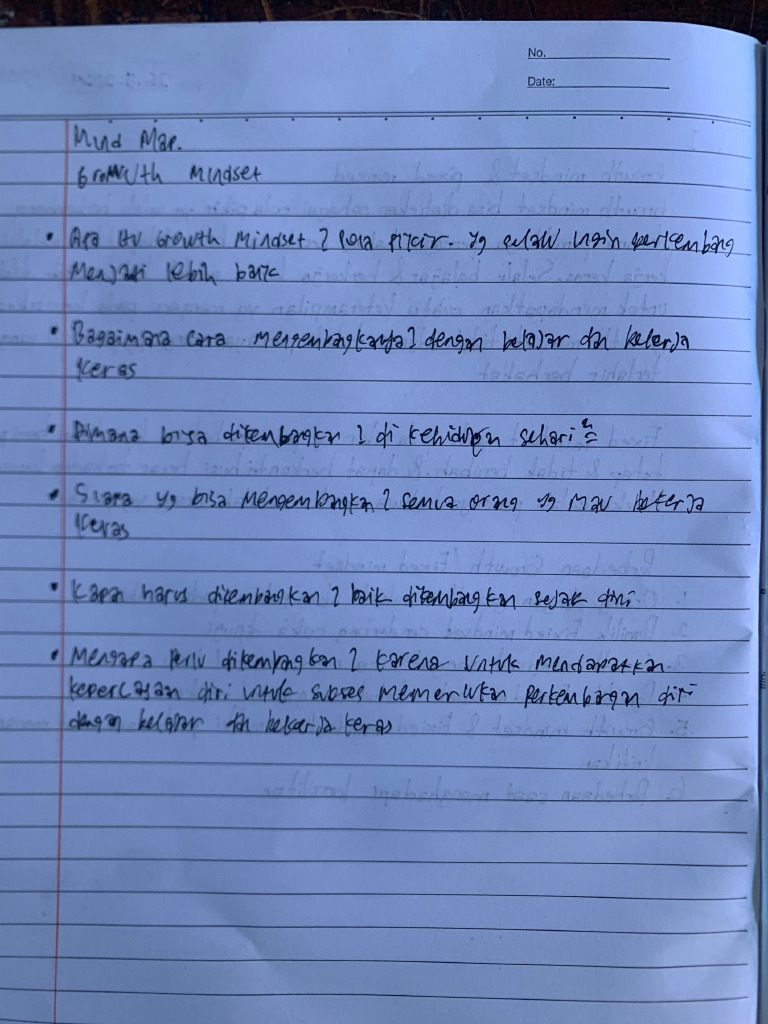 No.
Date:
Mind Map.
Growth Mindset
• Apa itu Growth Mindset ? Pola pikir. yg selalu ingin berkembang
Menjadi lebih baik
• Bagaimana cara mengembangkanya? dengan belajar dan kekerja
keras
• Dimana bisa dikembangkan ? di kehidupan sehari²
• Siapa yg bisa mengembangkan ? semua orang yg mau bekerja
keras
• Kapan harus dikembangkan ? baik dikembangkan sejak dini
• Mengapa perlu dikembangkan ? karena untuk mendapatkan
kepercayaan diri untuk sukses memerlukan perkembangan diri
dengan belajar dan bekerja keras